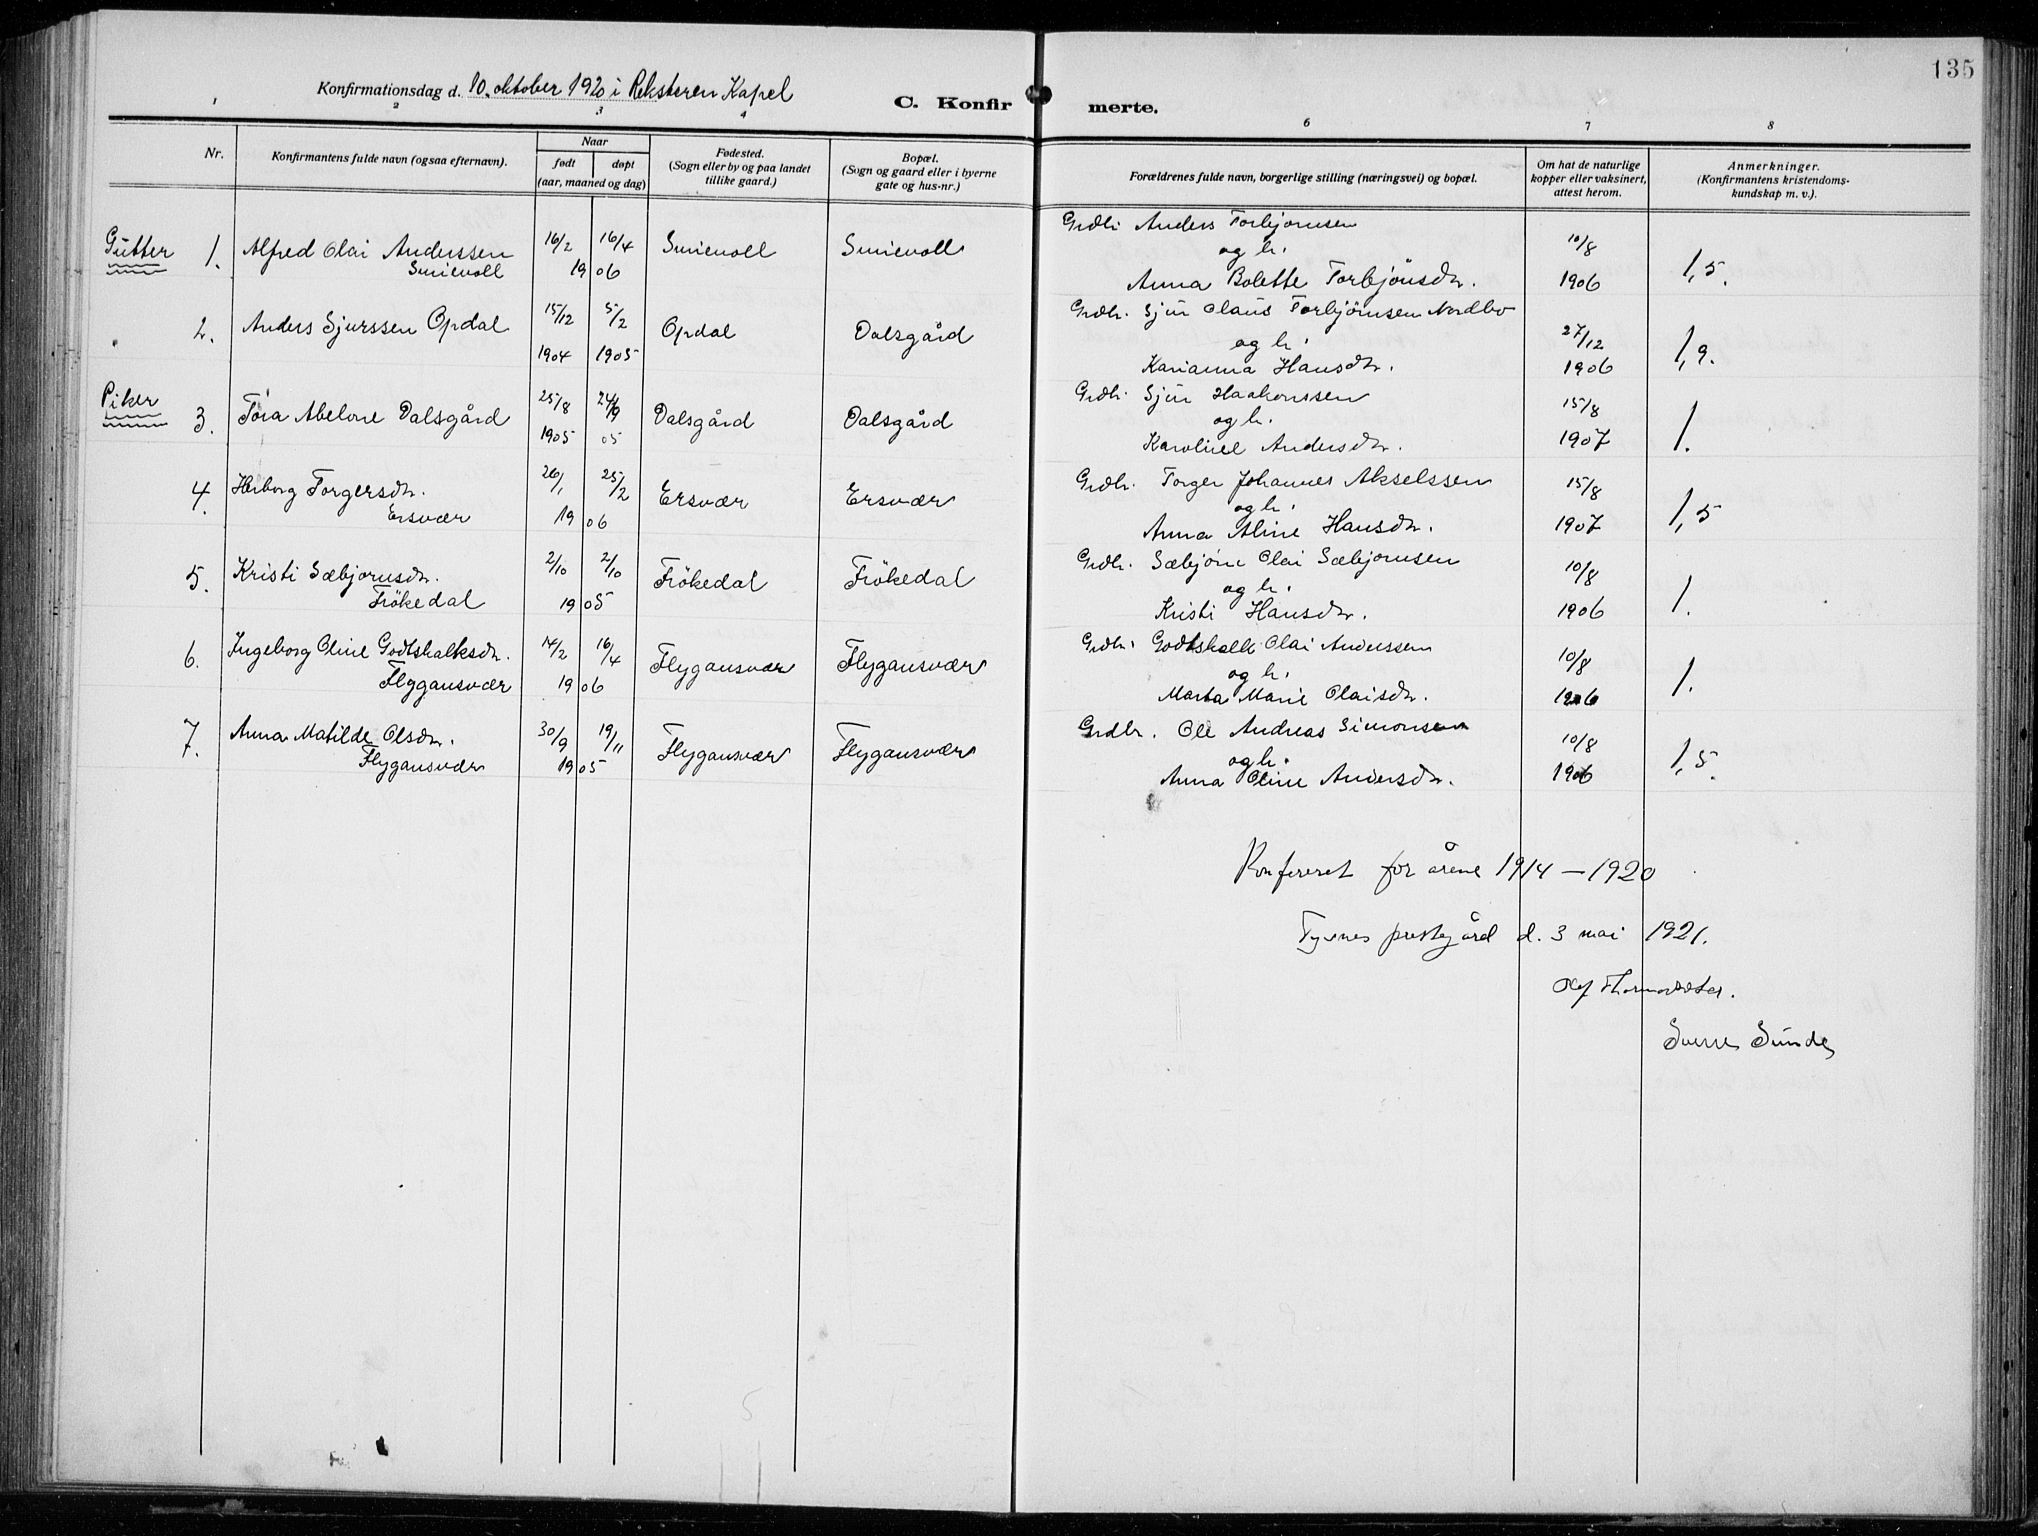 135
Konfirmationsdag d. 10. oktober 1920 i Reksteren Kapel
C. Konfirmerte.
1 2 3 4 6 7 8
Nr.
Konfirmantens fulde navn (ogsaa efternavn).
Naar
født døpt
(aar, maaned og dag)
Fødested.
(Sogn eller by og paa landet
tillike gaard.)
Bopæl.
(Sogn og gaard eller i byerne
gate og hus-nr.)
Forældrenes fulde navn, borgerlige stilling (næringsvei) og bopæl.
Om hat de naturlige
kopper eller vaksinert,
attest herom.
Anmerkninger.
(Konfirmantens kristendoms-
kundskap m. v.).
Gutter 1. Alfred Olai Anderssen 16/2 16/4 Sunievoll Sunievoll Grdbr. Anders Torbjørnsen 10/8 1,5.
Sunievoll 1906 og h. Anna Bolette Torbjönsdr. 1906
2. Anders Sjurssen Opdal 15/12 5/2 Opdal Dalsgård Grdbr. Sjur Claus Torbjörnsen Nordbø 27/12 1,9.
1904 1905 og h. Karianna Hansdr. 1906
Piker 3. Tora Abelone Dalsgård 25/8 24/9 Dalsgård Dalsgård Grdbr. Sjur Haakonssen 15/8 1.
1905 05 og h. Karoline Andersdr. 1907
4. Herborg Torgersdr. 26/1 25/2 Ersvær Ersvær Grdbr. Torger Johannes Akselssen 15/8 1,5
Ersvær 1906 og h. Anna Aline Hansdr. 1907
5. Kristi Sæbjørnsdr. 2/10 2/10 Frökedal Frökedal Grdbr. Sæbjörn Olai Sæbjørnsen 10/8 1.
Frökedal 1905 og h. Kristi Hansdr. 1906
6. Ingeborg Oline Godtskalksdr. 14/2 16/4 Flygansvær Flygansvær Grdbr. Godtskalk Olai Anderssen 10/8 1.
Flygansvær 1906 og h. Marta Marie Olaisdr. 1906
7. Anna Matilde Olsdr. 30/9 19/11 Flygansvær Flygansvær Grdbr. Ole Andreas Simonsen 10/8 1,5.
Flygansvær 1905 og h. Anna Oline Andersdr. 1906
Konfereret for årene 1914 – 1920
Tysnes prestegård d. 3 mai 1921.
Olaf Thormodsæter.
Sverre Sunde